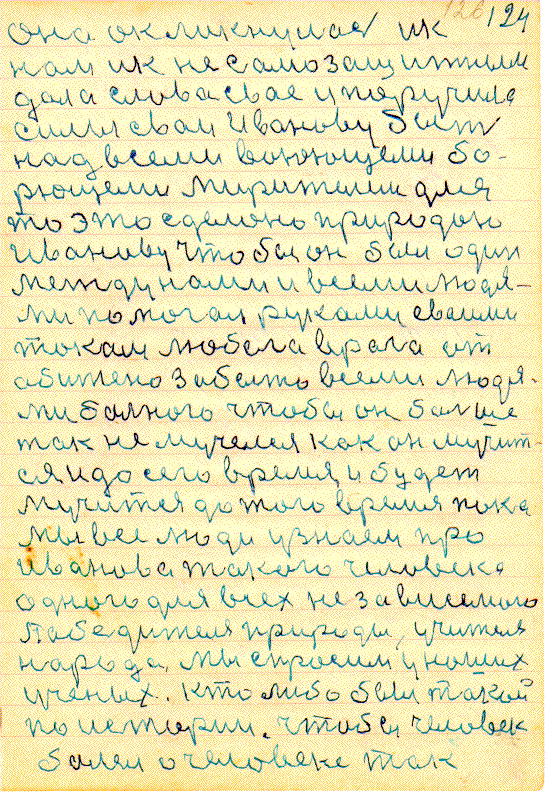 126 124
она окликнулас ик
нам ик не самозащитным
дала слова свае и поручила
силы сваи Иванову быт
над всеми воюющеми бо-
рющеми миритили для
то это сделоно природою
Иванову чтобы он был один
между нами и всеми людя-
ми помогал руками сваими
токам любова врага от
абижено забыто всеми людя-
ми болного чтобы он болше
так не мучелся как он мучит-
ся и до сего время и будет
мучится до того время пока
мы все люди узнаем про
Иванова такого человека
одного для всех не зависемого
победителя природы, учителя
народа, мы спросим у наших
ученых. кто либо был такой
по истории. чтобы человек
болел о человеке так